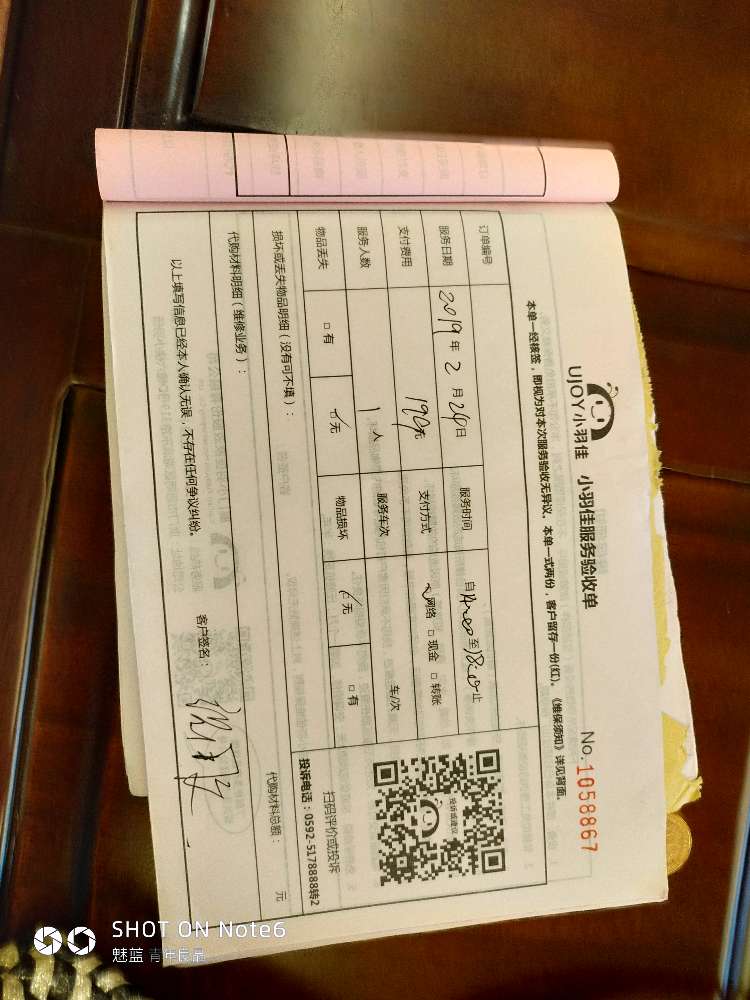 UJOY小羽佳 小羽佳服务验收单
No.1058867
本单一经核签，即视为对本次服务验收无异议，本单一式两份，客户留存一份(红)。《维保须知》详见背面。
订单编号
服务日期 2019年2月24日 服务时间 自 至 止
支付费用 190元 支付方式 网络 □现金 □转账
服务人数 1人 服务车次 车/次
物品丢失 □有 ☑无 物品损坏 ☑无 □有
投诉或建议
扫码评价或投诉
投诉电话：0592-5178888转2
损坏或丢失物品明细（没有可不填）：
代购材料明细（维修业务）： 代购材料总额： 元
以上填写信息已经本人确认无误，不存在任何争议纠纷。 客户签名：
SHOT ON Note6
魅蓝 青年良品